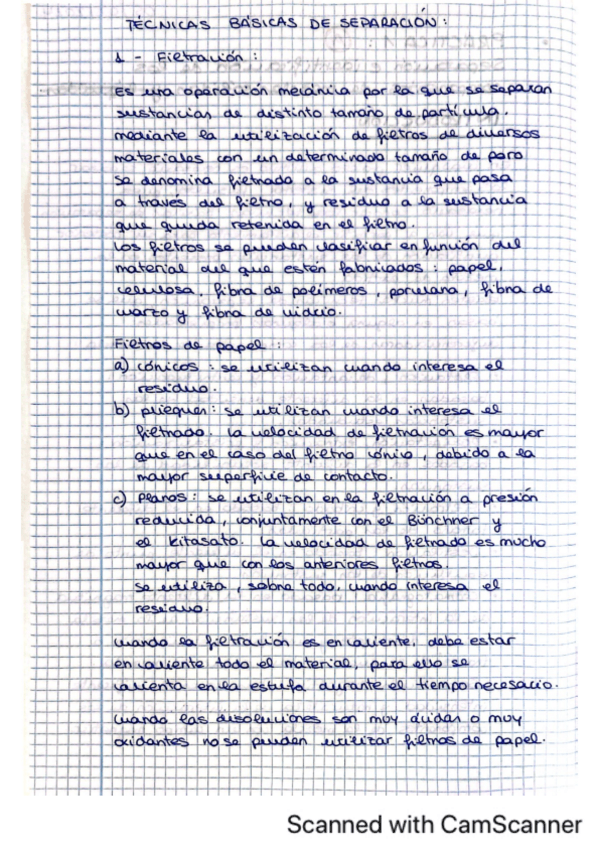 TÉCNICAS BÁSICAS DE SEPARACIÓN:
1 - Filtración:
Es una operación mecánica por la que se separan
sustancias de distinto tamaño de partícula.
mediante la utilización de filtros de diversos
materiales con un determinado tamaño de poro
se denomina filtrado a la sustancia que pasa
a través del filtro, y residuo a la sustancia
que queda retenida en el filtro.
Los filtros se pueden clasificar en función del
material del que estén fabricados: papel,
celulosa, fibra de polímeros, porcelana, fibra de
cuarzo y fibra de vidrio.
Filtros de papel:
a) cónicos: se utilizan cuando interesa el
residuo.
b) pliegues: se utilizan cuando interesa el
filtrado. La velocidad de filtración es mayor
que en el caso del filtro cónico, debido a la
mayor superficie de contacto.
c) Planos: se utilizan en la filtración a presión
reducida, conjuntamente con el Bünchner y
el kitasato. La velocidad de filtrado es mucho
mayor que con los anteriores filtros.
Se utiliza, sobre todo, cuando interesa el
residuo.
Cuando la filtración es en caliente, debe estar
en caliente todo el material, para ello se
calienta en la estufa durante el tiempo necesario.
Cuando las disoluciones son muy ácidas o muy
oxidantes no se pueden utilizar filtros de papel.
Scanned with CamScanner